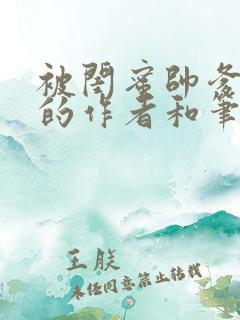 被閤蜜帥爸
的作者和筆
王朕
未经同意禁止转载